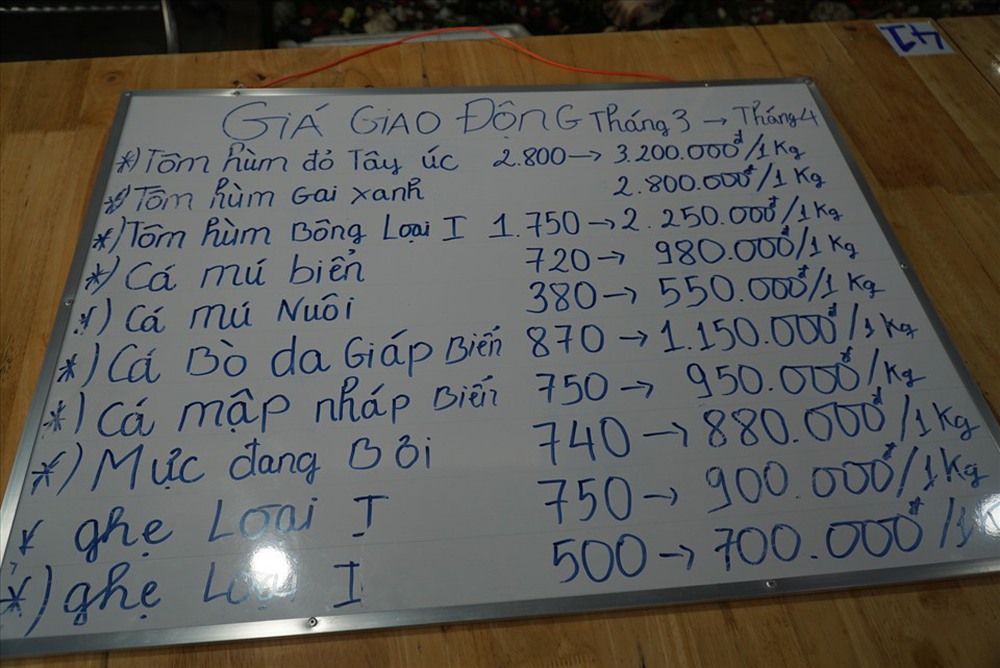 GIÁ GIAO ĐỘNG Tháng 3 → Tháng 4
*) Tôm hùm đỏ Tây úc 2.800 → 3.200.000đ/1 Kg
*) Tôm hùm Gai xanh 2.800.000đ/1 Kg
*) Tôm hùm Bông Loại I 1.750 → 2.250.000đ/1 Kg
*) Cá mú biển 720 → 980.000đ/1 Kg
*) Cá mú Nuôi 380 → 550.000đ/1 Kg
*) Cá Bò da Giáp Biến 870 → 1.150.000đ/1 Kg
*) Cá mập nháp Biến 750 → 950.000đ/Kg
*) Mực đang Bởi 740 → 880.000đ/1 Kg
* ghẹ Loại I 750 → 900.000đ/1 Kg
*) ghẹ Loại I 500 → 700.000đ/1